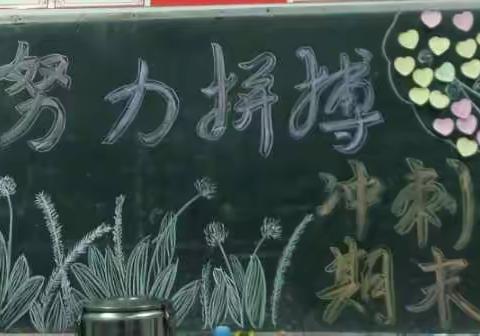 努力拼搏
冲刺
期末